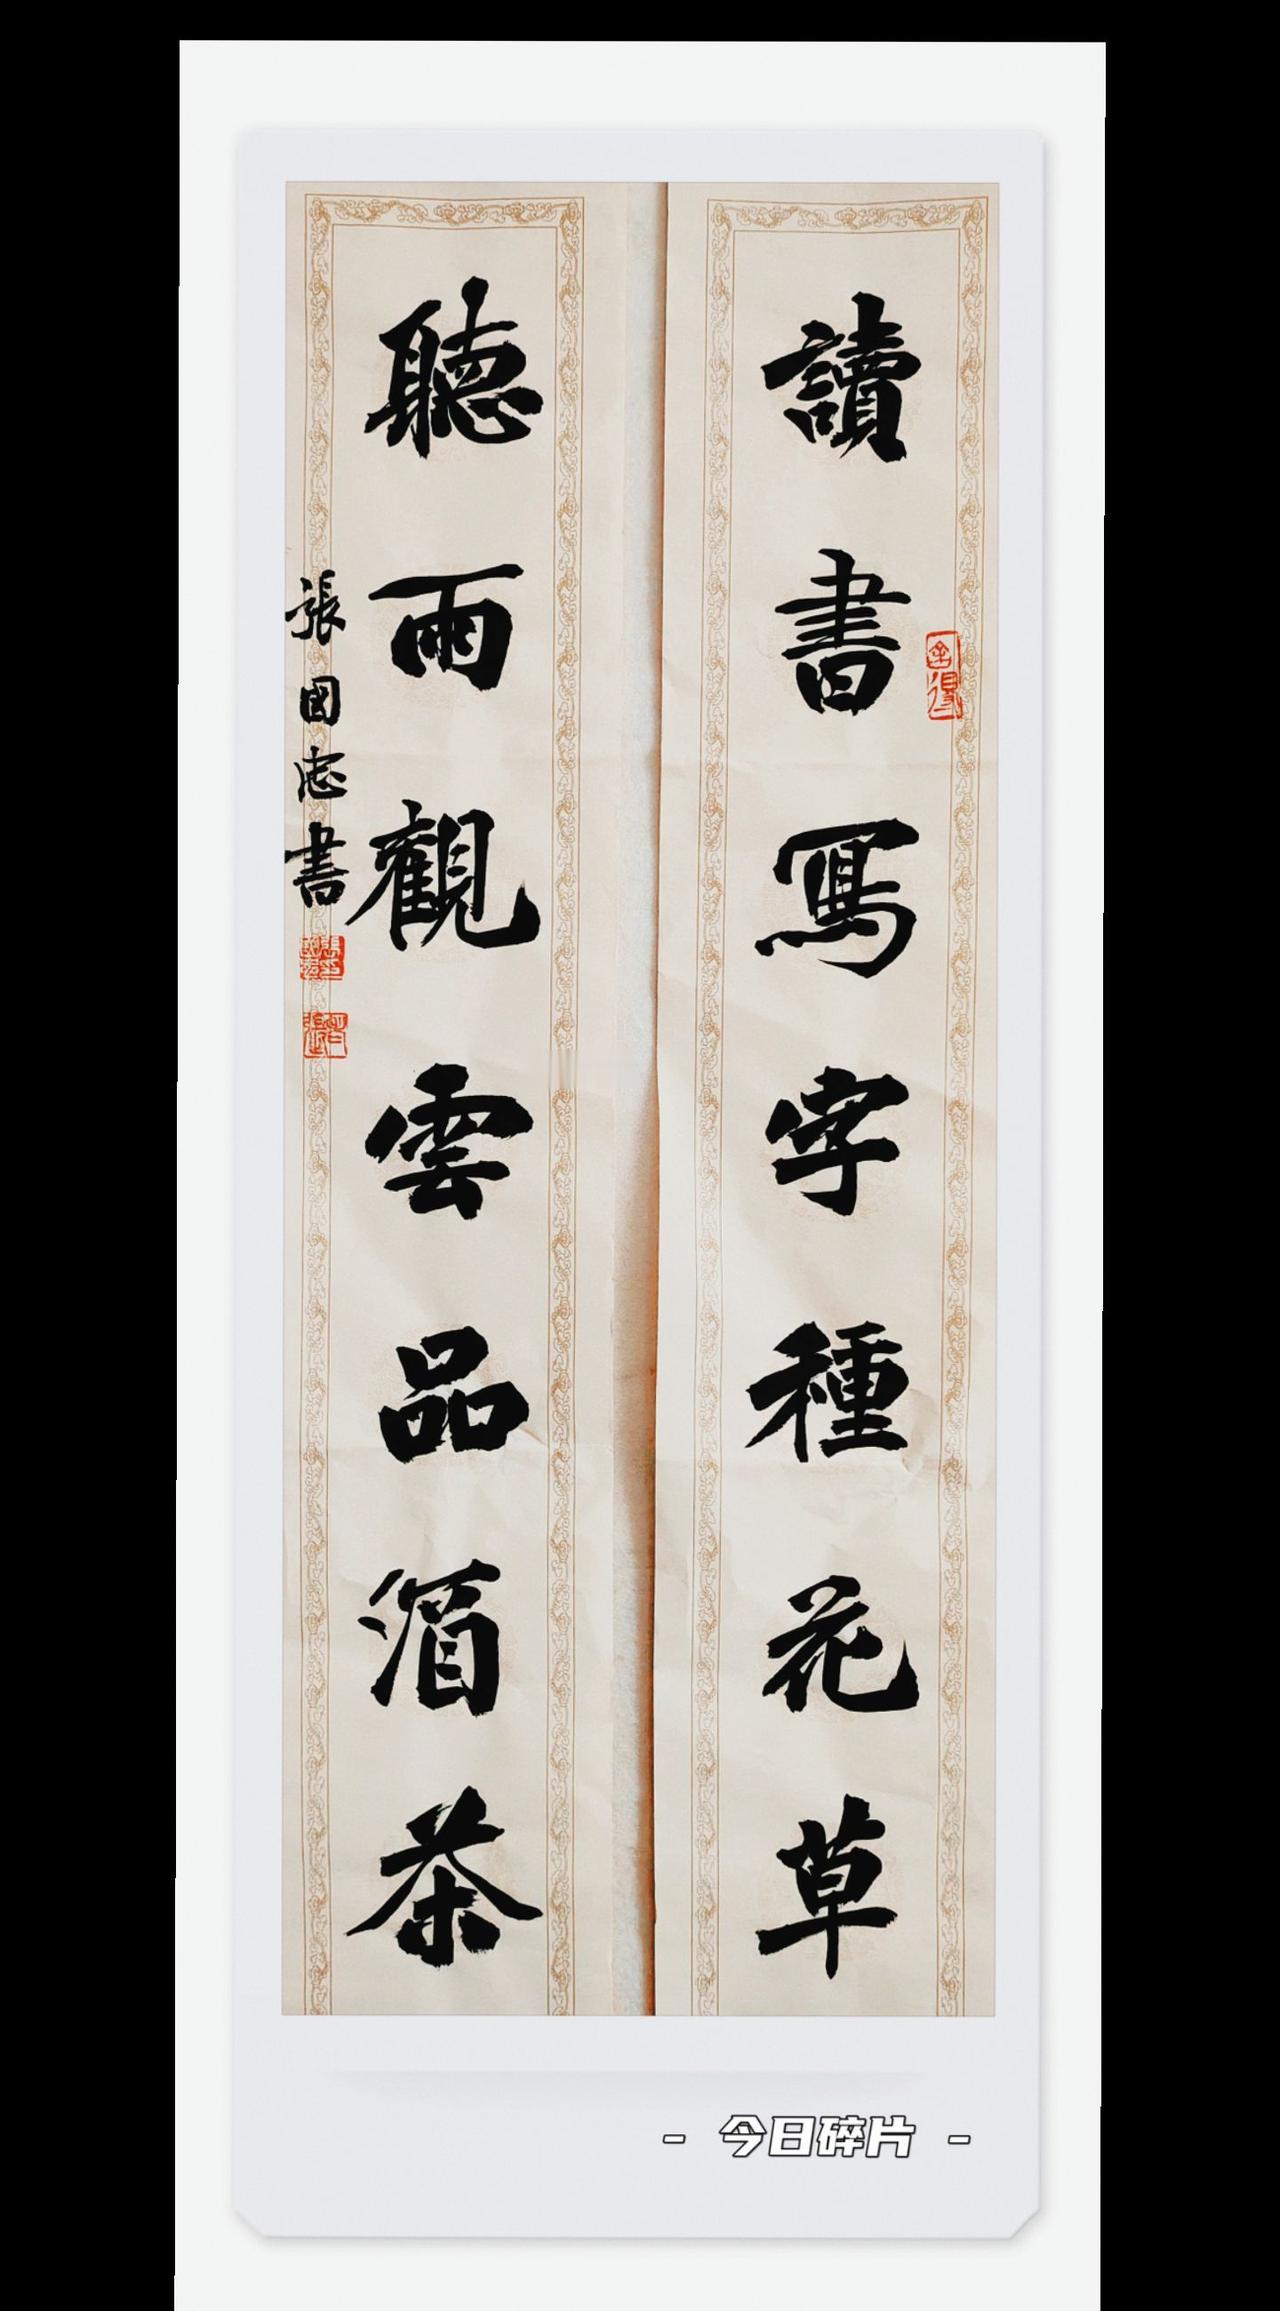 讀書寫字種花草
舍得
聽雨觀雲品酒茶
張國忠書
- 今日碎片 -